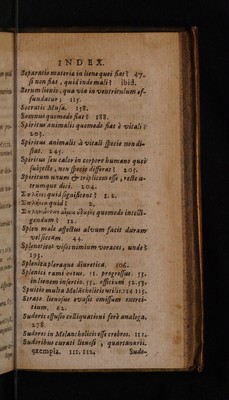 INDEX.
Separatio materia in liene quei fiat? 47.
si non fiat, quid inde mali? ibid.
Serum lienis, qua via in ventriculum ef-
fundatur; 115.
Socratis Musa. 158.
Somnus quomodo fiat? 188.
Spiritus animalis quomodo fiat è vitali?
203.
Spiritus animalis à vitali specie non di-
stat. 245.
Spiritus seu calor in corpore humano quot
subjecto, non specie differat? 205.
Spiritum unum & triplicem esse, recte v-
trumque dici. 204.
quid significent? 1.2.
quid? 2.
quomodo intelli-
gendum? 12.
Splen male affectus alvum facit duram
vel siccam 44.
Spleneticus visos nimium voraces, unde?
193.
Splenita pleraque diuretica. 106.
Splenici rami ortus. 11. progressus. 53.
in lienem insertio. 55. officium 52.53.
Spuitio multa Melācholicis utilis. 114.115.
Serato lienosus evasit omissum exerci-
tium. 62.
Sudoris effusio colliquationi ferè analoga.
278.
Sudores in Melancholicis esse crebros. 111.
Sudoribus curati lienosi, quartanarii.
exempla. 111.112. Sudo-